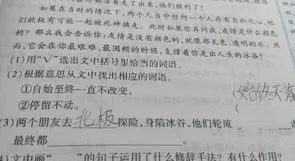 如果在当时的情况下，两个人当中任何一个人存有自私之心，他
们就有可能一起被死神捕走。此时如果你再问我，友情是什么颜色
的？那么我会告诉你：友情是没有颜色的，就像那氧气，透明的水，然
而，它会在你最艰难、最困顿的时候，支撑着你走出人生的冰谷！
(1)用“√”选出文中括号里恰当的词语。
(2)根据意思从文中找出相应的词语。
①自始至终一直不改变。
②停留不动。
(3)两个朋友去北极探险，身陷冰谷，他们轮流
最终都
文中画“ ”的句子运用了什么修辞手法？有什么作用？